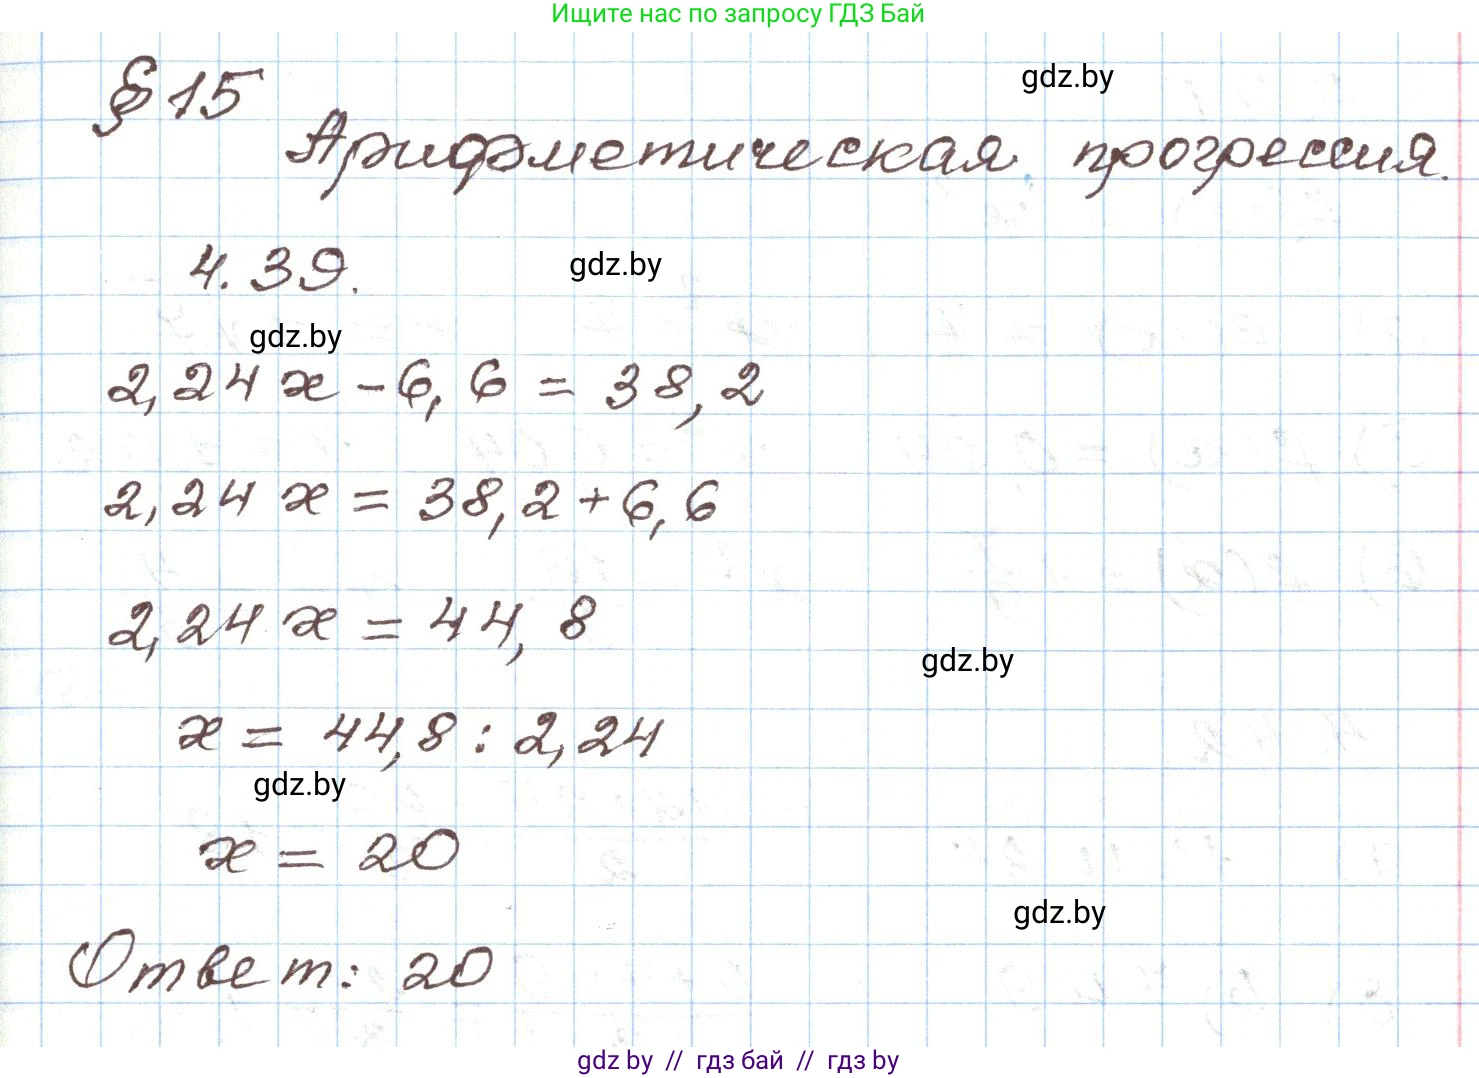 Ищите нас по запросу ГДЗ Бай
§ 15
gdz.by
Арифметическая прогрессия.
4.39.
gdz.by
gdz.by
2,24 x - 6,6 = 38,2
2,24 x = 38,2 + 6,6
2,24 x = 44,8
gdz.by
x = 44,8 : 2,24
gdz.by
x = 20
gdz.by
Ответ: 20
gdz by // гдз бай // гдз by